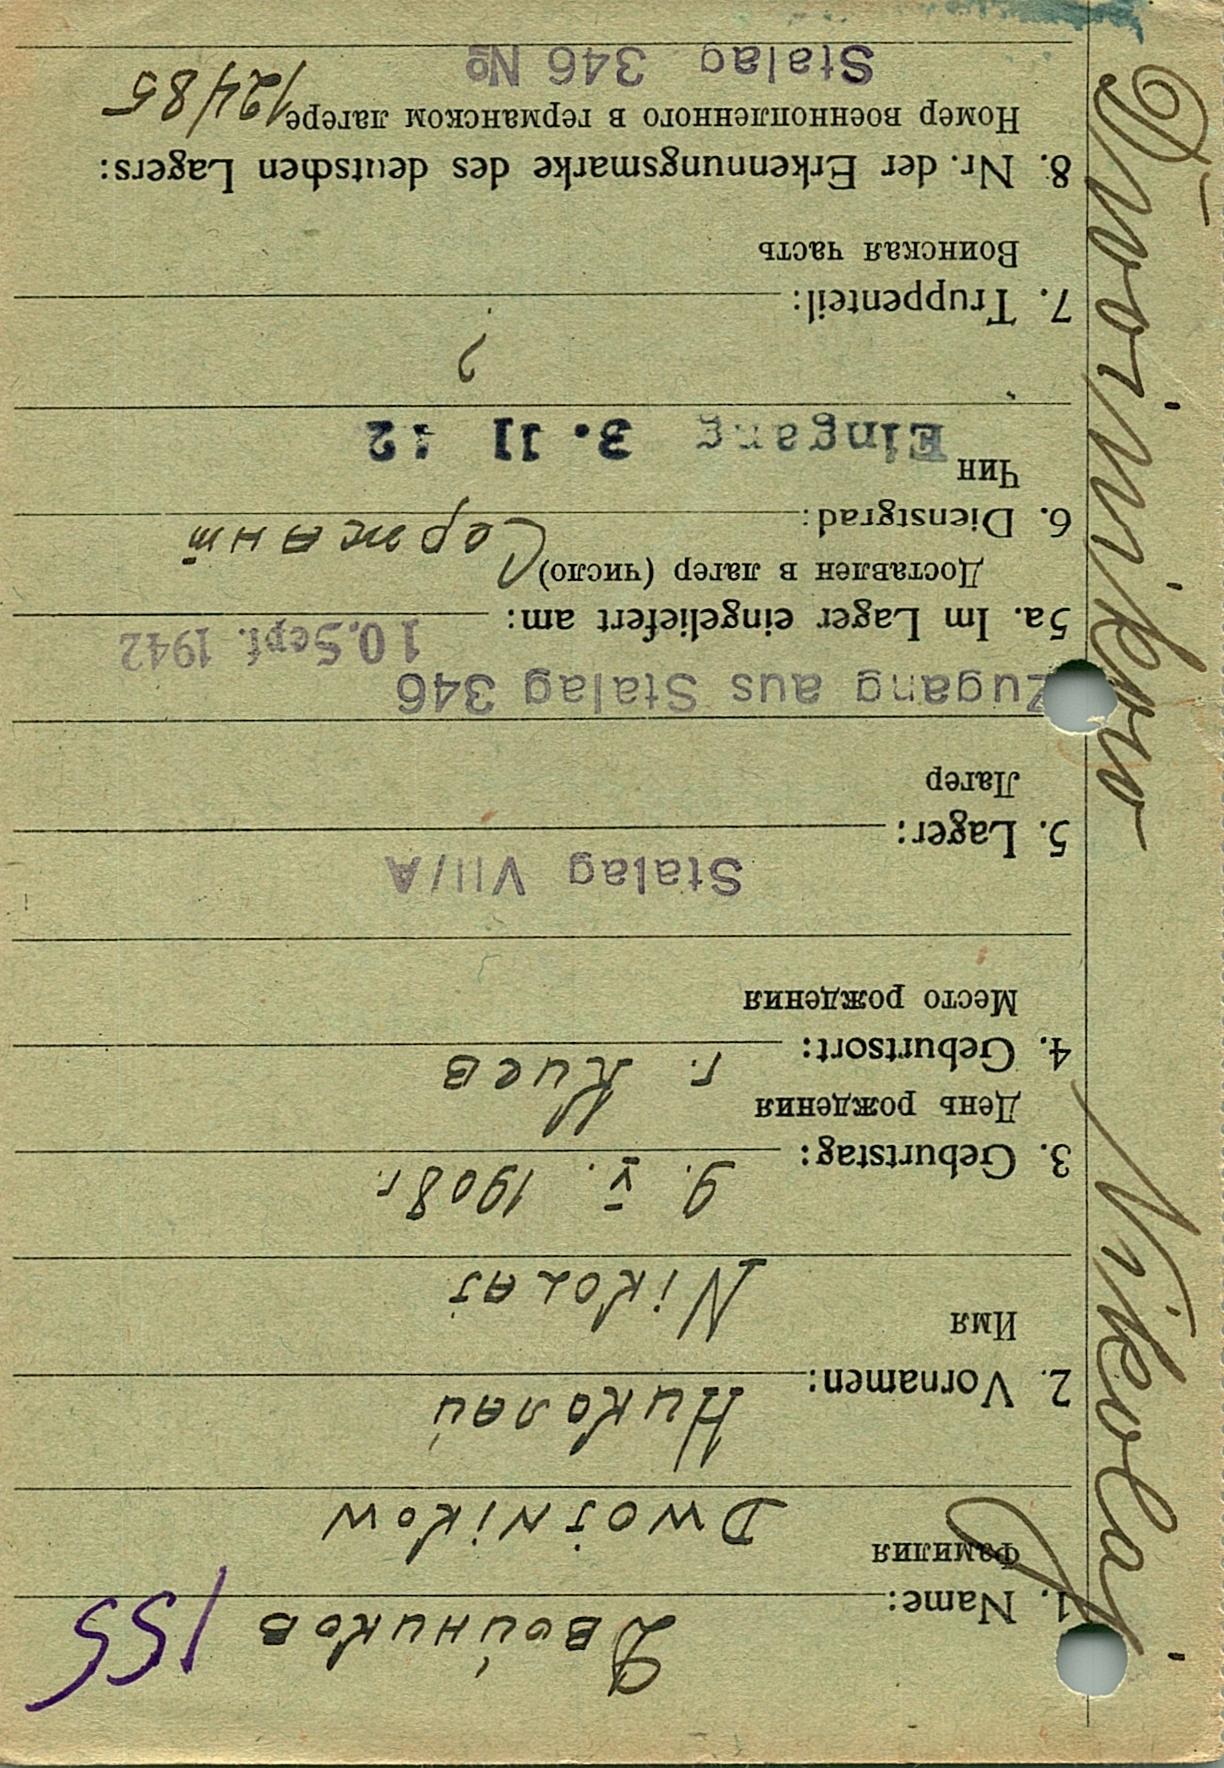 Двойников
155
1. Name:
Фамилия
Dwojnikow
Николай
2. Vornamen:
Имя
Nikolaj
9. V. 1908 г.
3. Geburtstag:
День рождения
г. Киев
4. Geburtsort:
Место рождения
Stalag VII/A
5. Lager:
Лагер
Zugang aus Stalag 346
10. Sept. 1942
5a. Im Lager eingeliefert am:
Доставлен в лагер (число)
Сержант
6. Dienstgrad:
Чин
Eingang 3. 11
?
7. Truppenteil:
Воинская часть
8. Nr. der Erkennungsmarke des deutschen Lagers:
Номер военнопленного в германском лагере
12485
Stalag 346 №
Nikolaj